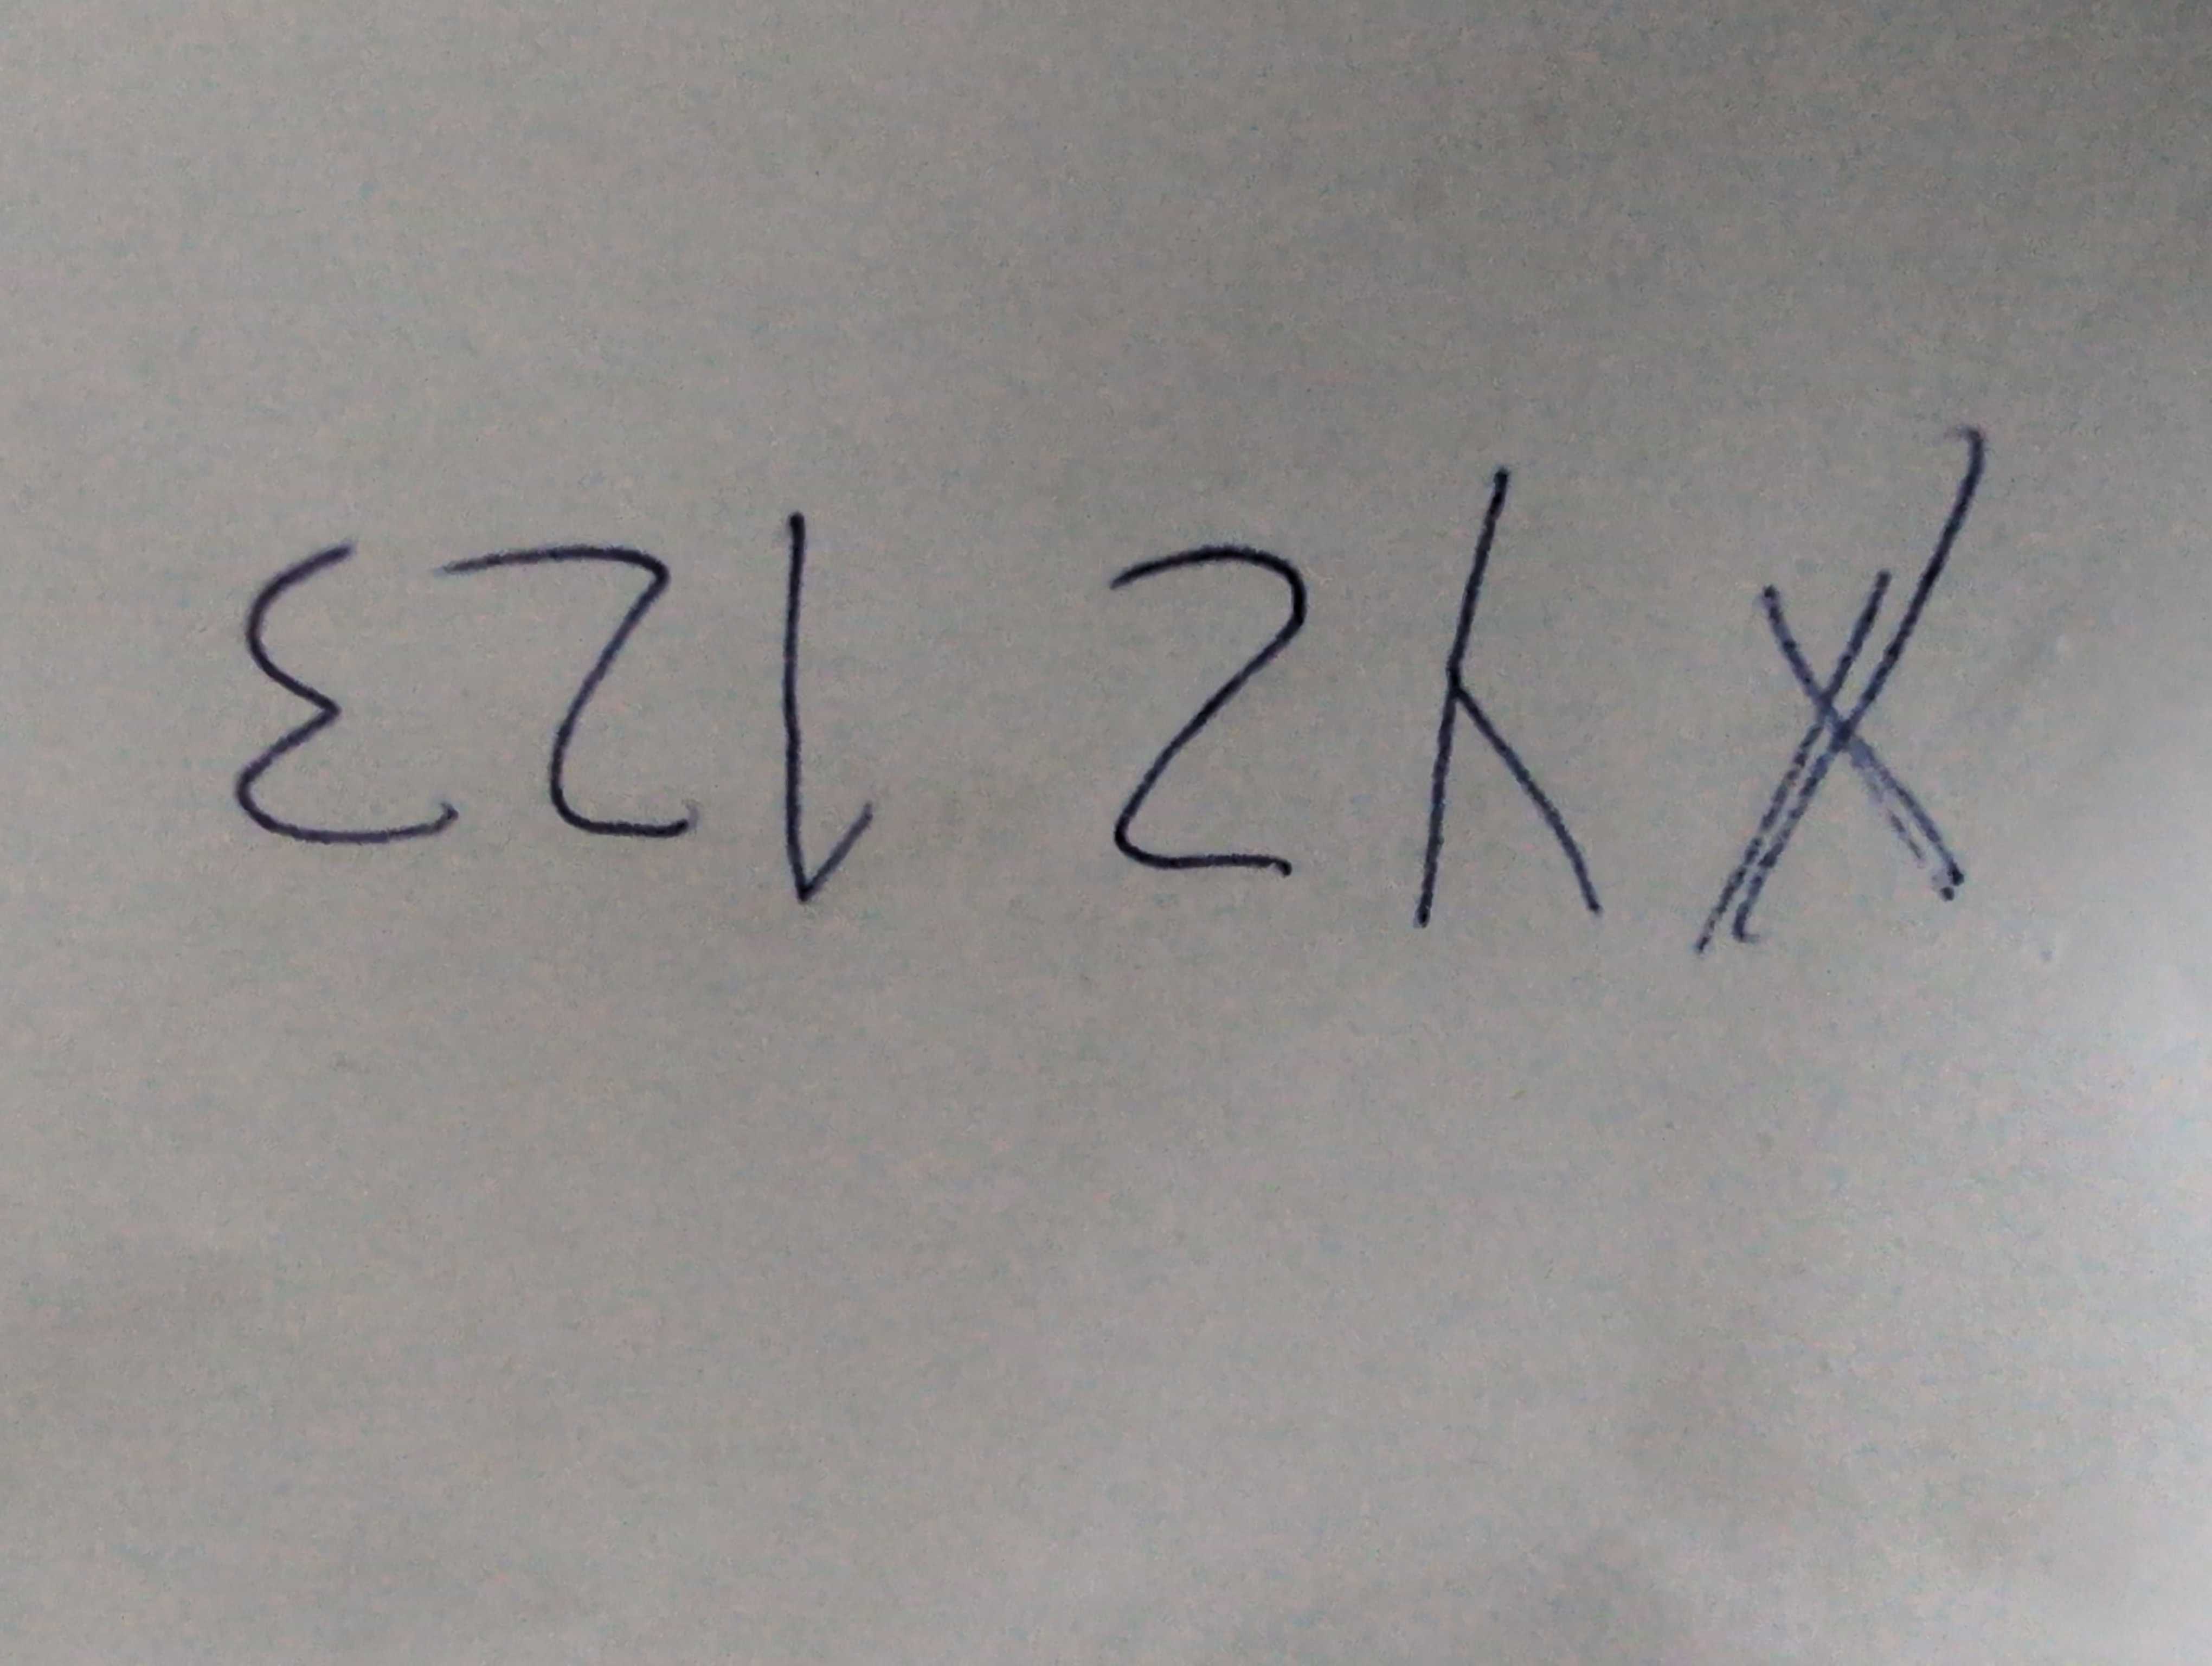 XYZ 123